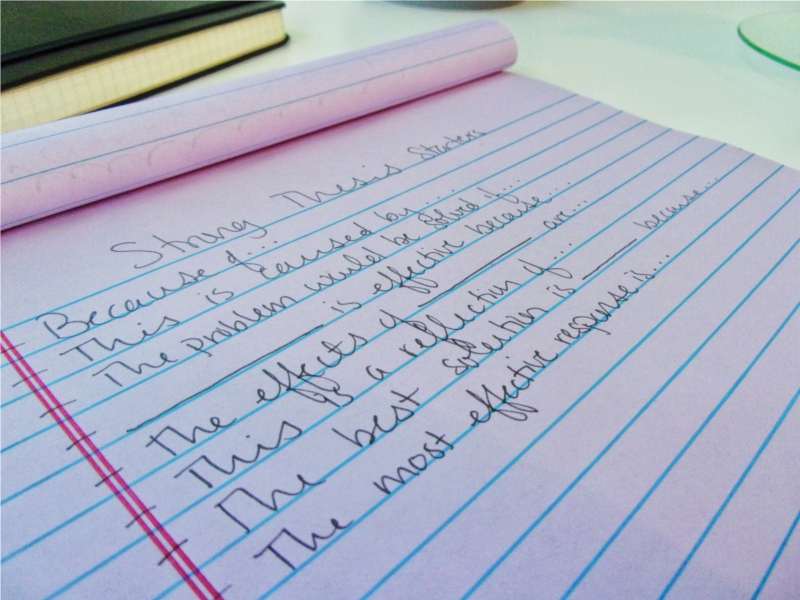 Strong Thesis Starters
Because of...
This is caused by...
The problem would be solved if...
________ is effective because...
The effects of ________ are...
This is a reflection of...
The best solution is ____ because...
The most effective response is...